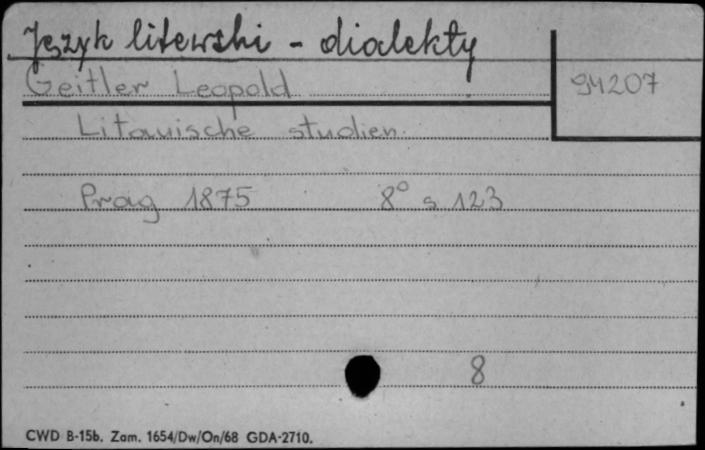 Język litewski - dialekty
Geitler Leopold
94207
Litauische studien.
Prag 1875 8° s. 123
8
CWD B-15b. Zam. 1654/Dw/On/68 GDA-2710.